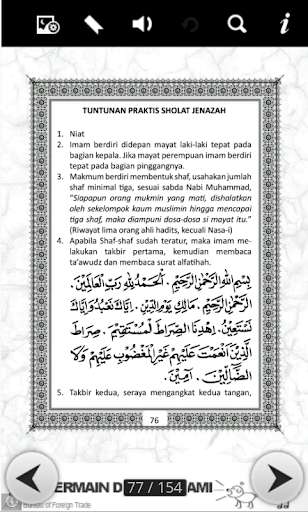 TUNTUNAN PRAKTIS SHOLAT JENAZAH
1. Niat
2. Imam berdiri didepan mayat laki-laki tepat pada
bagian kepala. Jika mayat perempuan imam berdiri
tepat pada bagian pinggangnya.
3. Makmum berdiri membentuk shaf, usahakan jumlah
shaf minimal tiga, sesuai sabda Nabi Muhammad,
"Siapapun orang mukmin yang mati, dishalatkan
oleh sekelompok kaum muslimin hingga mencapai
tiga shaf, maka diampuni dosa-dosa si mayat itu."
(Riwayat lima orang ahli hadits, kecuali Nasa-i)
4. Apabila Shaf-shaf sudah teratur, maka imam me-
lakukan takbir pertama, kemudian membaca
ta'awudz dan membaca surat alfatihah.
بِسْمِ اللهِ الرَّحْمٰنِ الرَّحِيْمِ . اَلْحَمْدُ لِلّٰهِ رَبِّ الْعَالَمِيْنَ .
الرَّحْمٰنِ الرَّحِيْمِ . مَالِكِ يَوْمِ الدِّيْنِ . إِيَّاكَ نَعْبُدُ وَإِيَّاكَ
نَسْتَعِيْنُ . اِهْدِنَا الصِّرَاطَ الْمُسْتَقِيْمَ . صِرَاطَ
الَّذِيْنَ أَنْعَمْتَ عَلَيْهِمْ غَيْرِ الْمَغْضُوْبِ عَلَيْهِمْ وَلَا
الضَّالِّيْنَ . آمِيْنَ .
5. Takbir kedua, seraya mengangkat kedua tangan,
76
ERMAIN D 77 / 154 AMI
Bureau of Foreign Trade